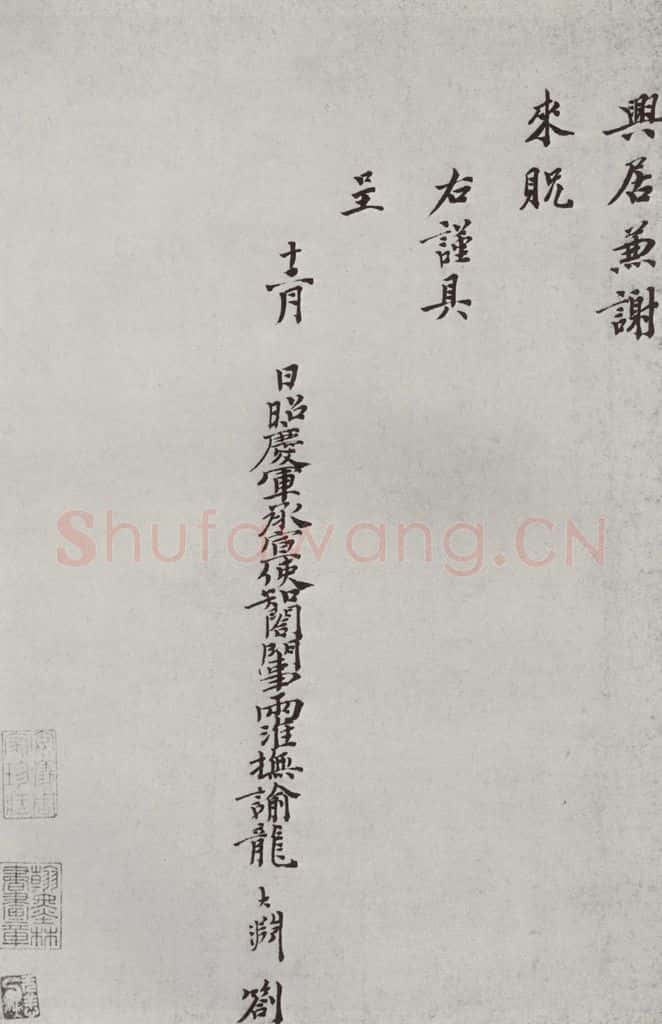 興居兼謝
來貺
右謹具
呈
十二月 日昭慶軍承宣使知閤門事兩淮撫諭龍 大淵 劄
Shufawang.CN
翰墨林書畫章